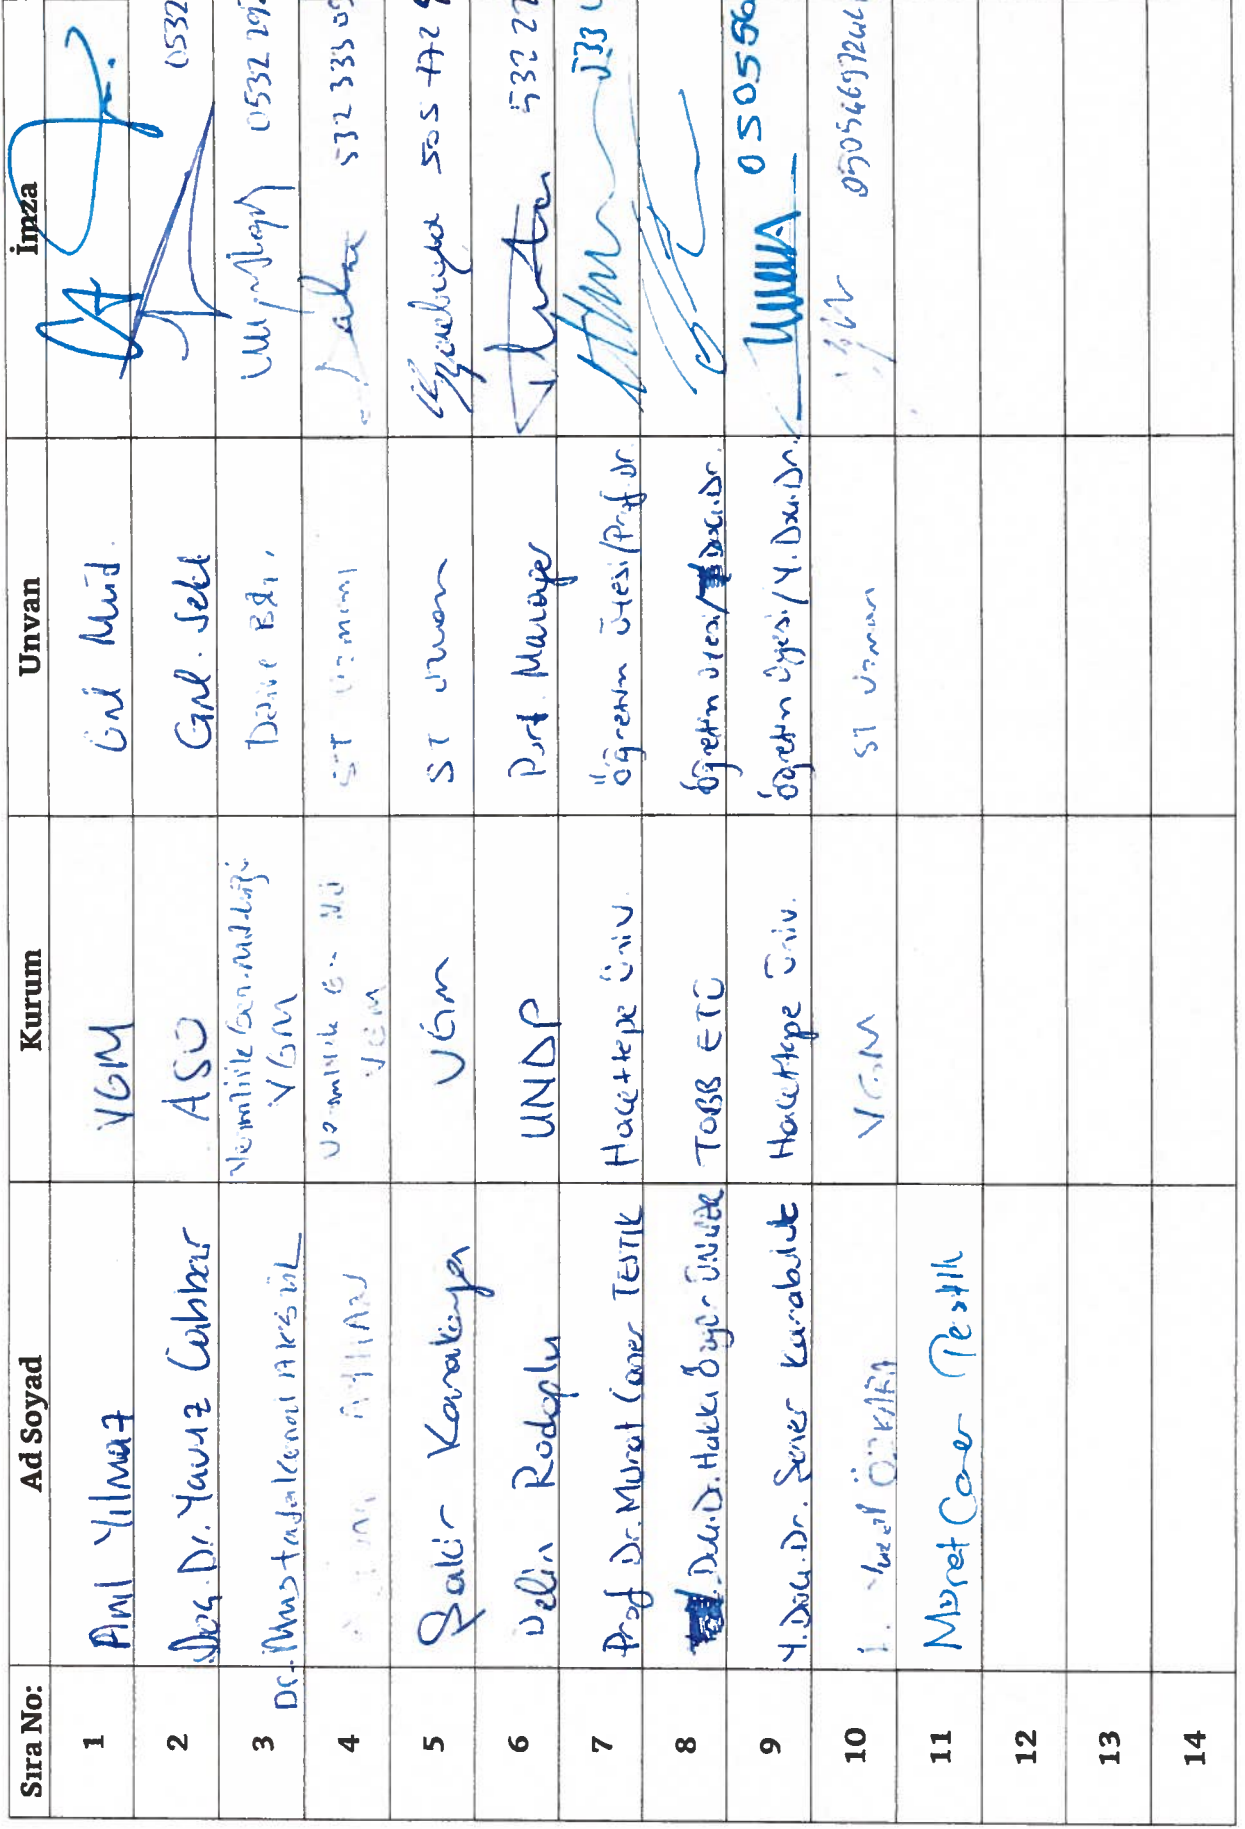 Sıra No: Ad Soyad Kurum Unvan İmza
1 Anıl Yılmaz VGM Gnl Müd.
2 Doç. Dr. Yavuz Cabbar ASÜ Gnl. Sekt 0532
3 Dr. Mustafa Kemal AKGÜL Verimlilik Gen. Müdürlüğü
VGM Daire Bşk. 0532
4 Verimlilik G
VGM ST Uzmanı 532 333
5 Bakır Karakaya VGM ST Uzmanı 505 772
6 Pelin Rodoplu UNDP Port. Manager 532 22
7 Prof. Dr. Murat Caner TESTIK Hacettepe Üniv. Öğretim Üyesi/Prof. Dr. 533
8 Doç. Dr. Hakkı Özgür ÜNVER TOBB ETÜ Öğretim Üyesi/ Doç. Dr.
9 Y. Doç. Dr. Soner Karabulut Hacettepe Üniv. Öğretim Üyesi/Y. Doç. Dr. 050556
10 Yücel ÖZKARA VGM ST Uzmanı
11 Murat Caner Testik
12
13
14